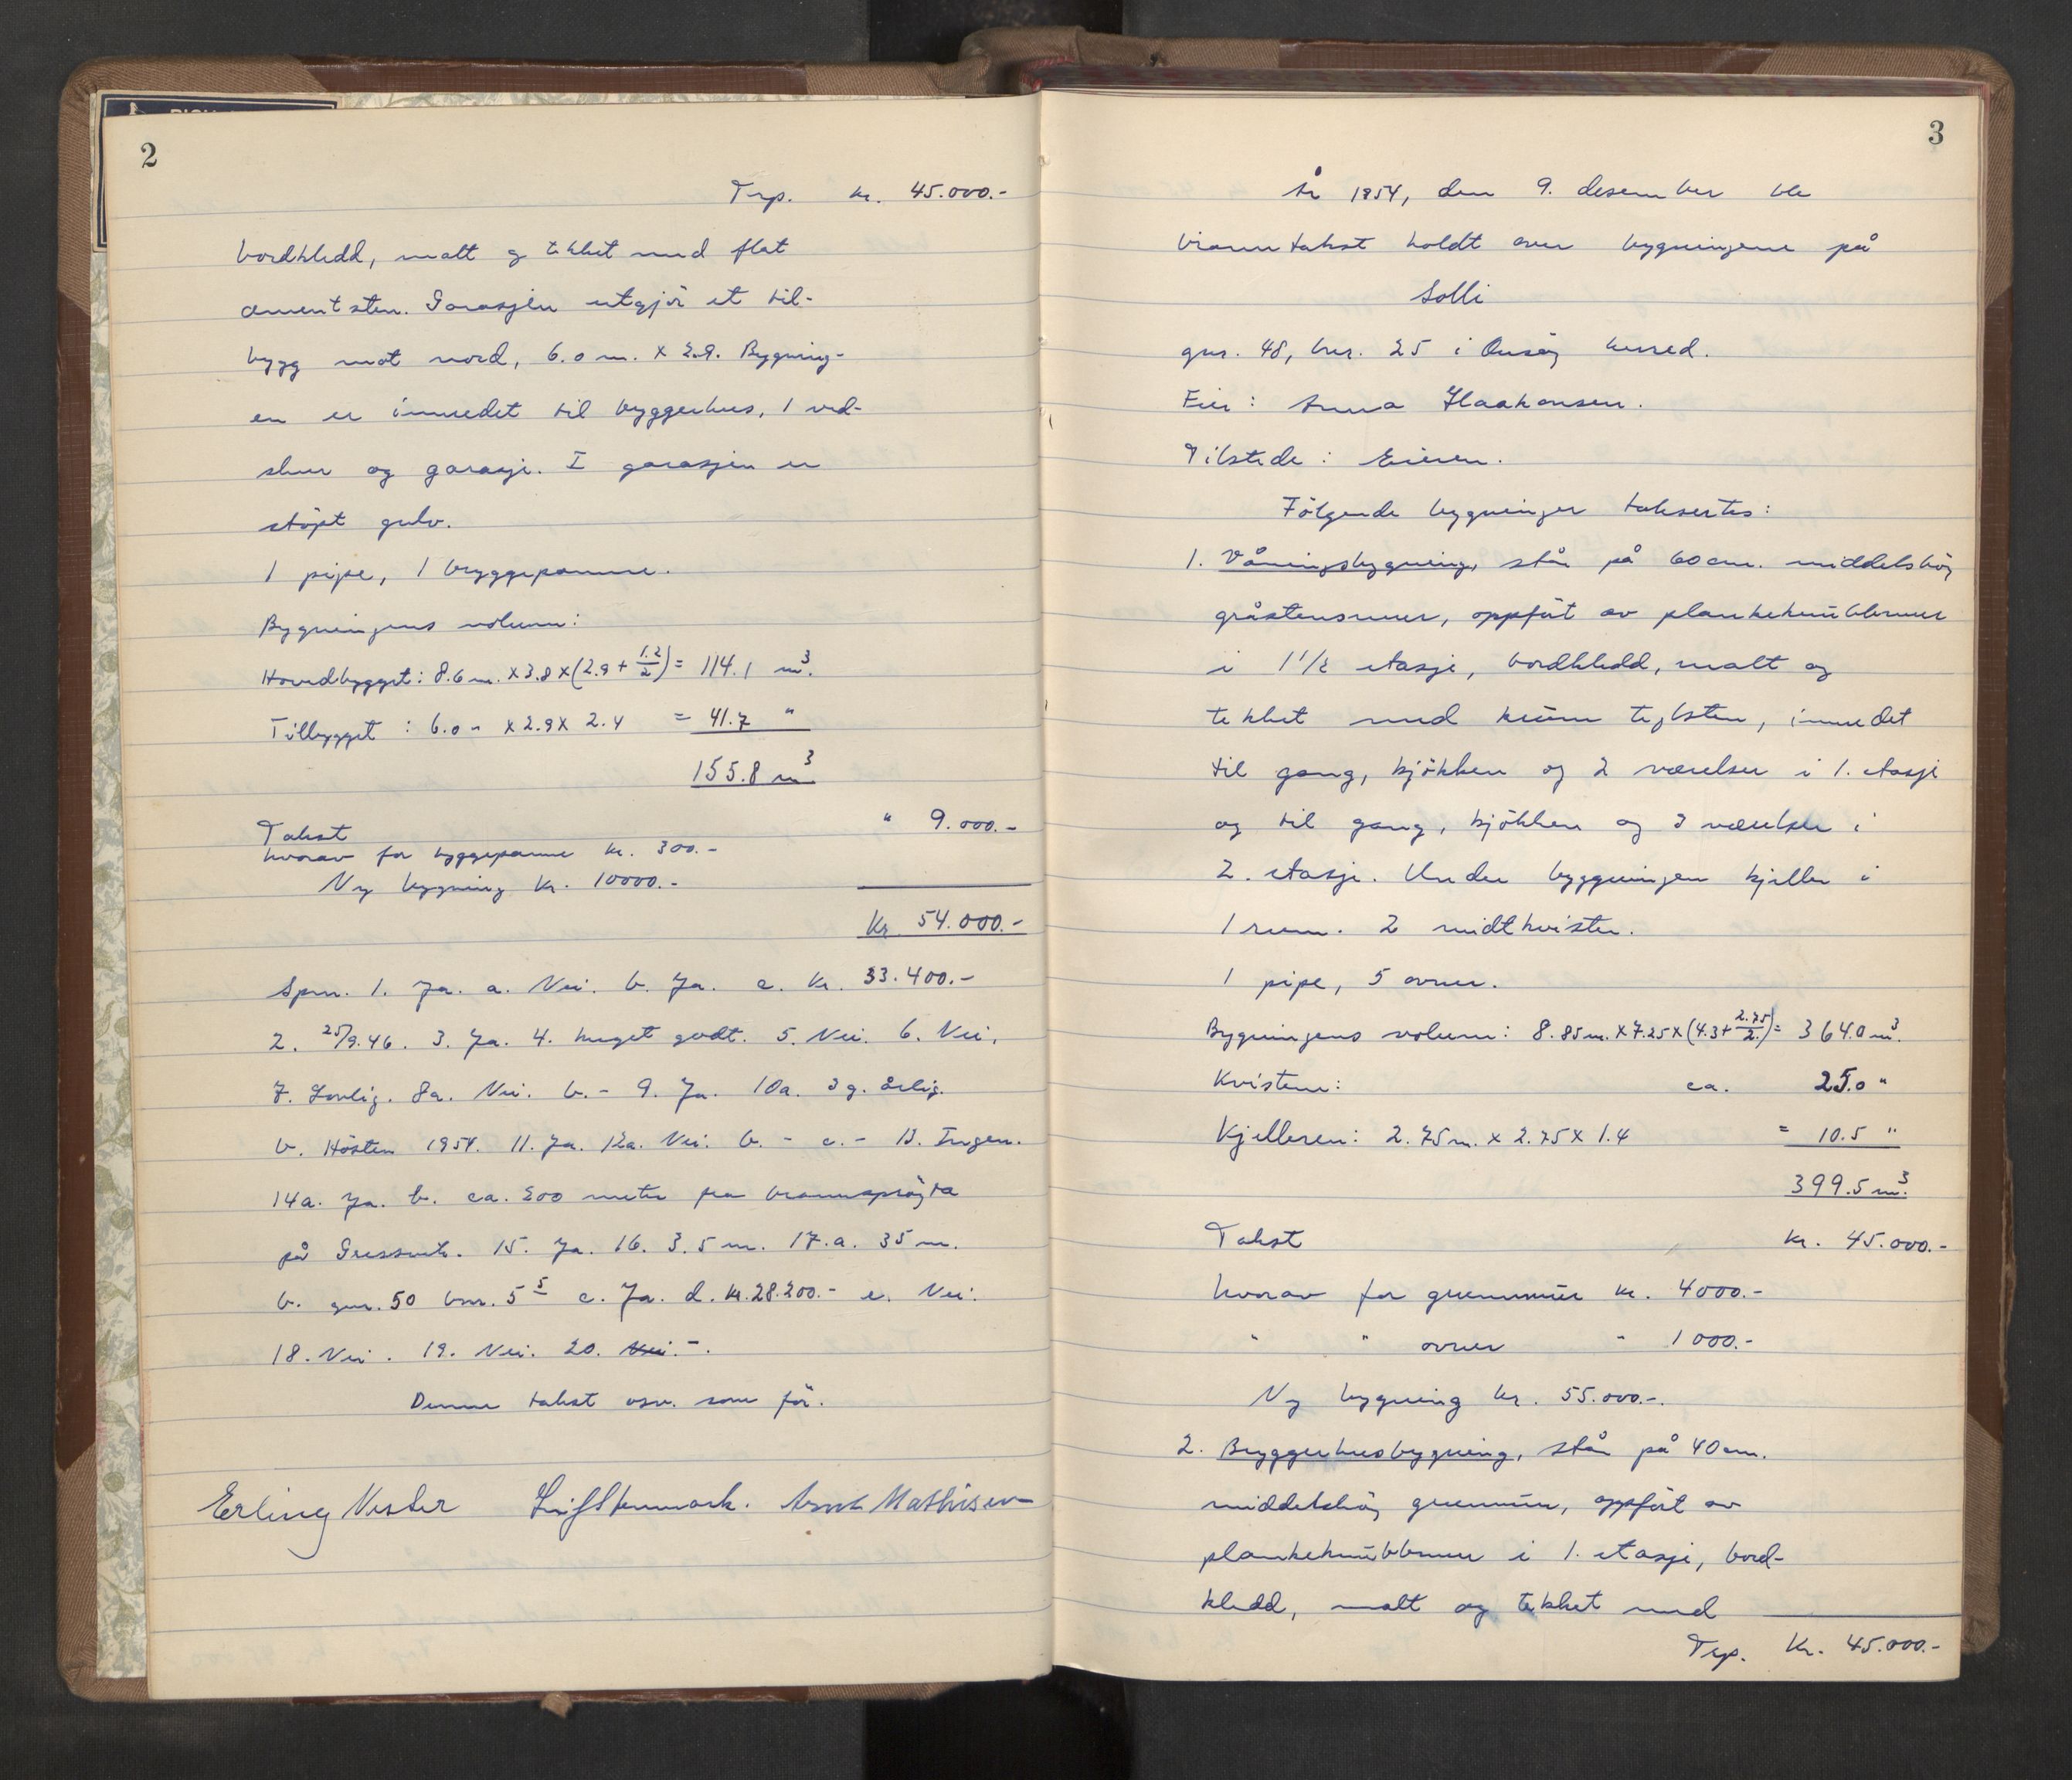 2
Trp. kr. 45.000.-
bordkledd, malt og tekket med flat
cementsten. Garasjen utgjør et til-
bygg mot nord, 6.0 m. x 2.9. Bygning-
en er innredet til bryggerhus, 1 ved-
skur og garasje. I garasjen er
støpt gulv.
1 pipe, 1 bryggepanne.
Bygningens volum:
Hovedbygget: 8.6 m. x 3.8 x (2.9 + 1.2/2) = 114.1 m³.
Tilbygget : 6.0 " x 2.9 x 2.4 = 41.7 "
155.8 m³
Takst " 9.000.-
hvorav for bryggepanne kr. 300.-
Ny bygning kr. 10000.-
Kr. 54.000.-
Spm. 1. Ja. a. Nei. b. Ja. c. kr. 33.400.-
2. 25/9.46. 3. Ja. 4. Meget godt. 5. Nei. 6. Nei.
7. Lovlig. 8a. Nei. b. - 9. Ja. 10a. 3 g. årlig.
b. Høsten 1954. 11. Ja. 12a. Nei. b. - c. - 13. Ingen.
14a. Ja. b. ca. 200 meter fra brannsprøyta
på Gressvik. 15. Ja. 16. 3.5 m. 17.a. 35 m.
b. gnr. 50 bnr. 5 5 c. Ja. d. kr. 28.200.- e. Nei.
18. Nei. 19. Nei. 20. Nei. -.
Denne takst osv. som før.
Erling Vister Leif Stenmark. Arvid Mathisen
3
År 1954, den 9. desember ble
branntakst holdt over bygningene på
Solli
gnr. 48, bnr. 25 i Onsøy herred.
Eier: Anna Haakonsen.
Tilstede: Eieren.
Følgende bygninger taksertes:
1. Våningsbygning, står på 60 cm. middelshøy
gråstensmur, oppført av plankekubbmur
i 1 1/2 etasje, bordkledd, malt og
tekket med krum teglsten, innredet
til gang, kjøkken og 2 værelser i 1. etasje
og til gang, kjøkken og 3 værelser i
2. etasje. Under byggningen kjeller i
1 rum. 2 midtkvister.
1 pipe, 5 ovner.
Bygningens volum: 8.85 m. x 7.25 x (4.3 + 2.75/2.) = 364.0 m³.
Kvistene: ca. 25.0 "
Kjelleren: 2.75 m. x 2.75 x 1.4 = 10.5 "
399.5 m³.
Takst kr. 45.000.-
hvorav for grunnmur kr. 4000.-
" " ovner " 1000.-
Ny bygning kr. 55.000.-.
2. Bryggerhusbygning, står på 40 cm.
middelshøy grunnmur, oppført av
plankekubbmur i 1. etasje, bord-
kledd, malt og tekket med
Trp. Kr. 45.000.-